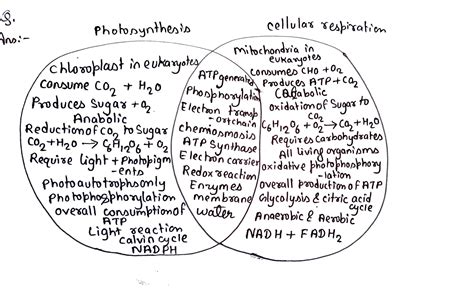 8.
Ans:-
Photosynthesis
Chloroplast in eukaryotes
Consume CO2 + H2O
Produces Sugar + O2
Anabolic
Reduction of CO2 to Sugar
CO2 + H2O → C6H12O6 + O2
Require light + Photopigm
-ents
Photoautotrophs only
Photophosphorylation
overall consumption of
ATP
Light reaction
calvin cycle
NADPH
ATP generated
Phosphorylation
Electron transp
-ort chain
chemiosmosis
ATP Synthase
Electron carrier
Redox reaction
Enzymes
membrane
water
cellular respiration
Mitochondria in
eukaryotes
Consumes CHO + O2
Produces ATP + CO2
Catabolic
oxidation of Sugar to
CO2
C6H12O6 + O2 → CO2 + H2O
Requires Carbohydrates
All living organisms
oxidative photophosphory
-lation
overall production of ATP
Glycolysis & citric acid
cycle
Anaerobic & Aerobic
NADH + FADH2